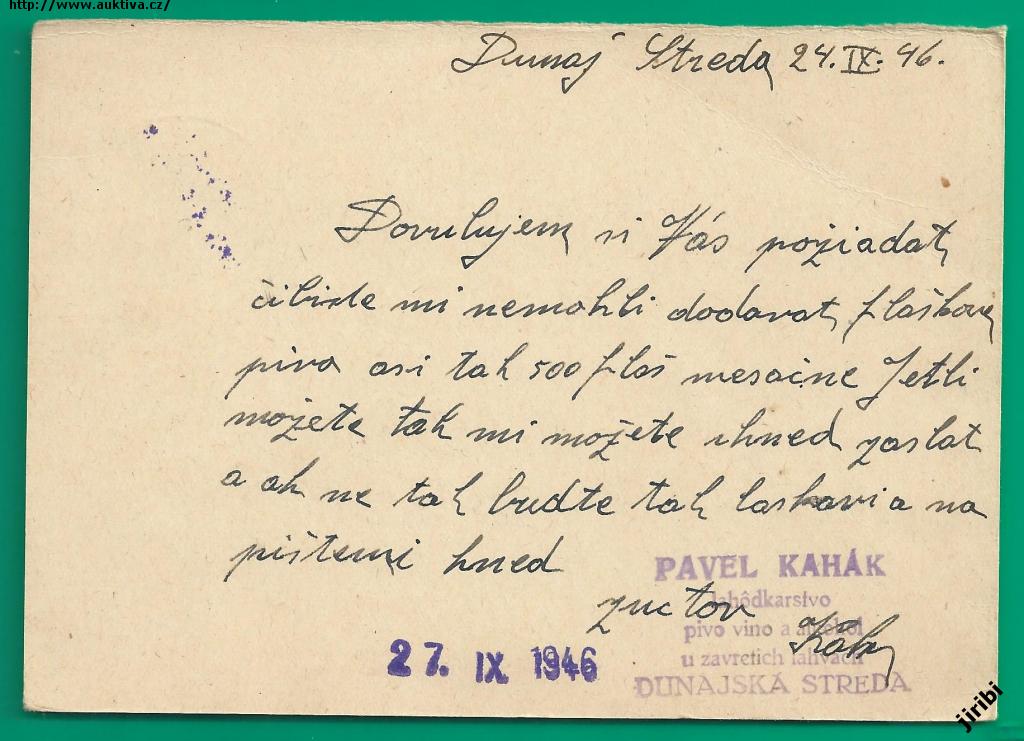 http://www.auktiva.cz/
Dunaj Streda 24. IX. 46.
Dovulujem si Vás požiadat,
čibiste mi nemohli dodavat, flaškove
pivo asi tak 500 flaš mesačne Jetli
možete tak mi možete ihned zaslat
a ak ne tak budte tak laskavi a na
pištemi hned
PAVEL KAHÁK
lahôdkarstvo
pivo vino a alkohol
u zavretich lahvách
DUNAJSKÁ STREDA
27. IX 1946
jiribi